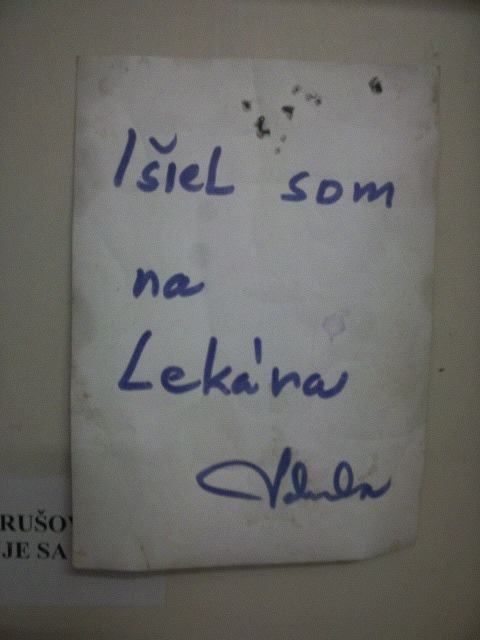 Išiel som
na
Lekára
RUŠOV
JE SA